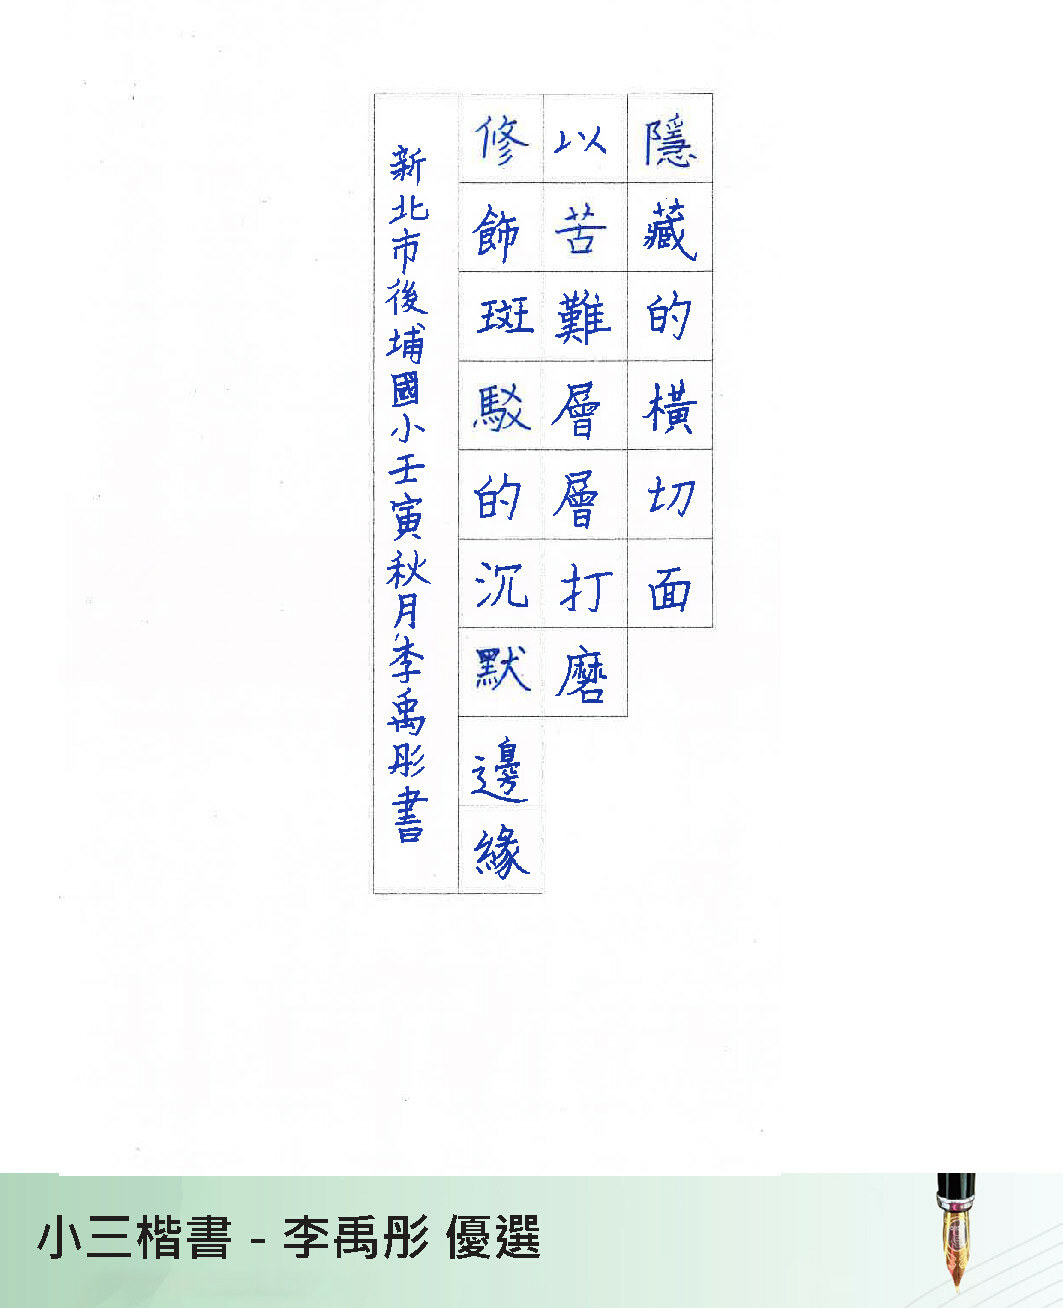 隱藏的橫切面
以苦難層層打磨
修飾斑駁的沉默邊緣
新北市後埔國小壬寅秋月李禹彤書
小三楷書 - 李禹彤 優選